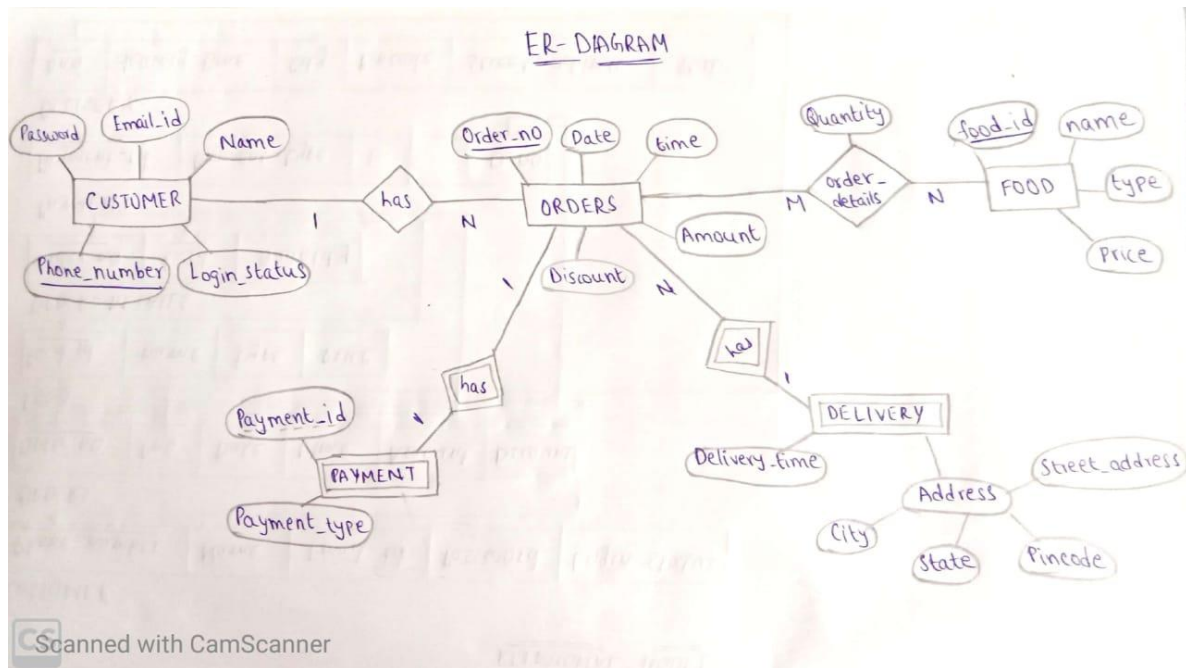 ER- DIAGRAM
Password
Email_id
Name
CUSTOMER
Phone_number
Login_status
1
has
N
Order_no
Date
time
ORDERS
Amount
Discount
M
Quantity
order_
details
N
food_id
name
FOOD
type
Price
1
has
1
Payment_id
PAYMENT
Payment_type
N
has
1
DELIVERY
Delivery_time
Address
Street_address
City
State
Pincode
CS
Scanned with CamScanner